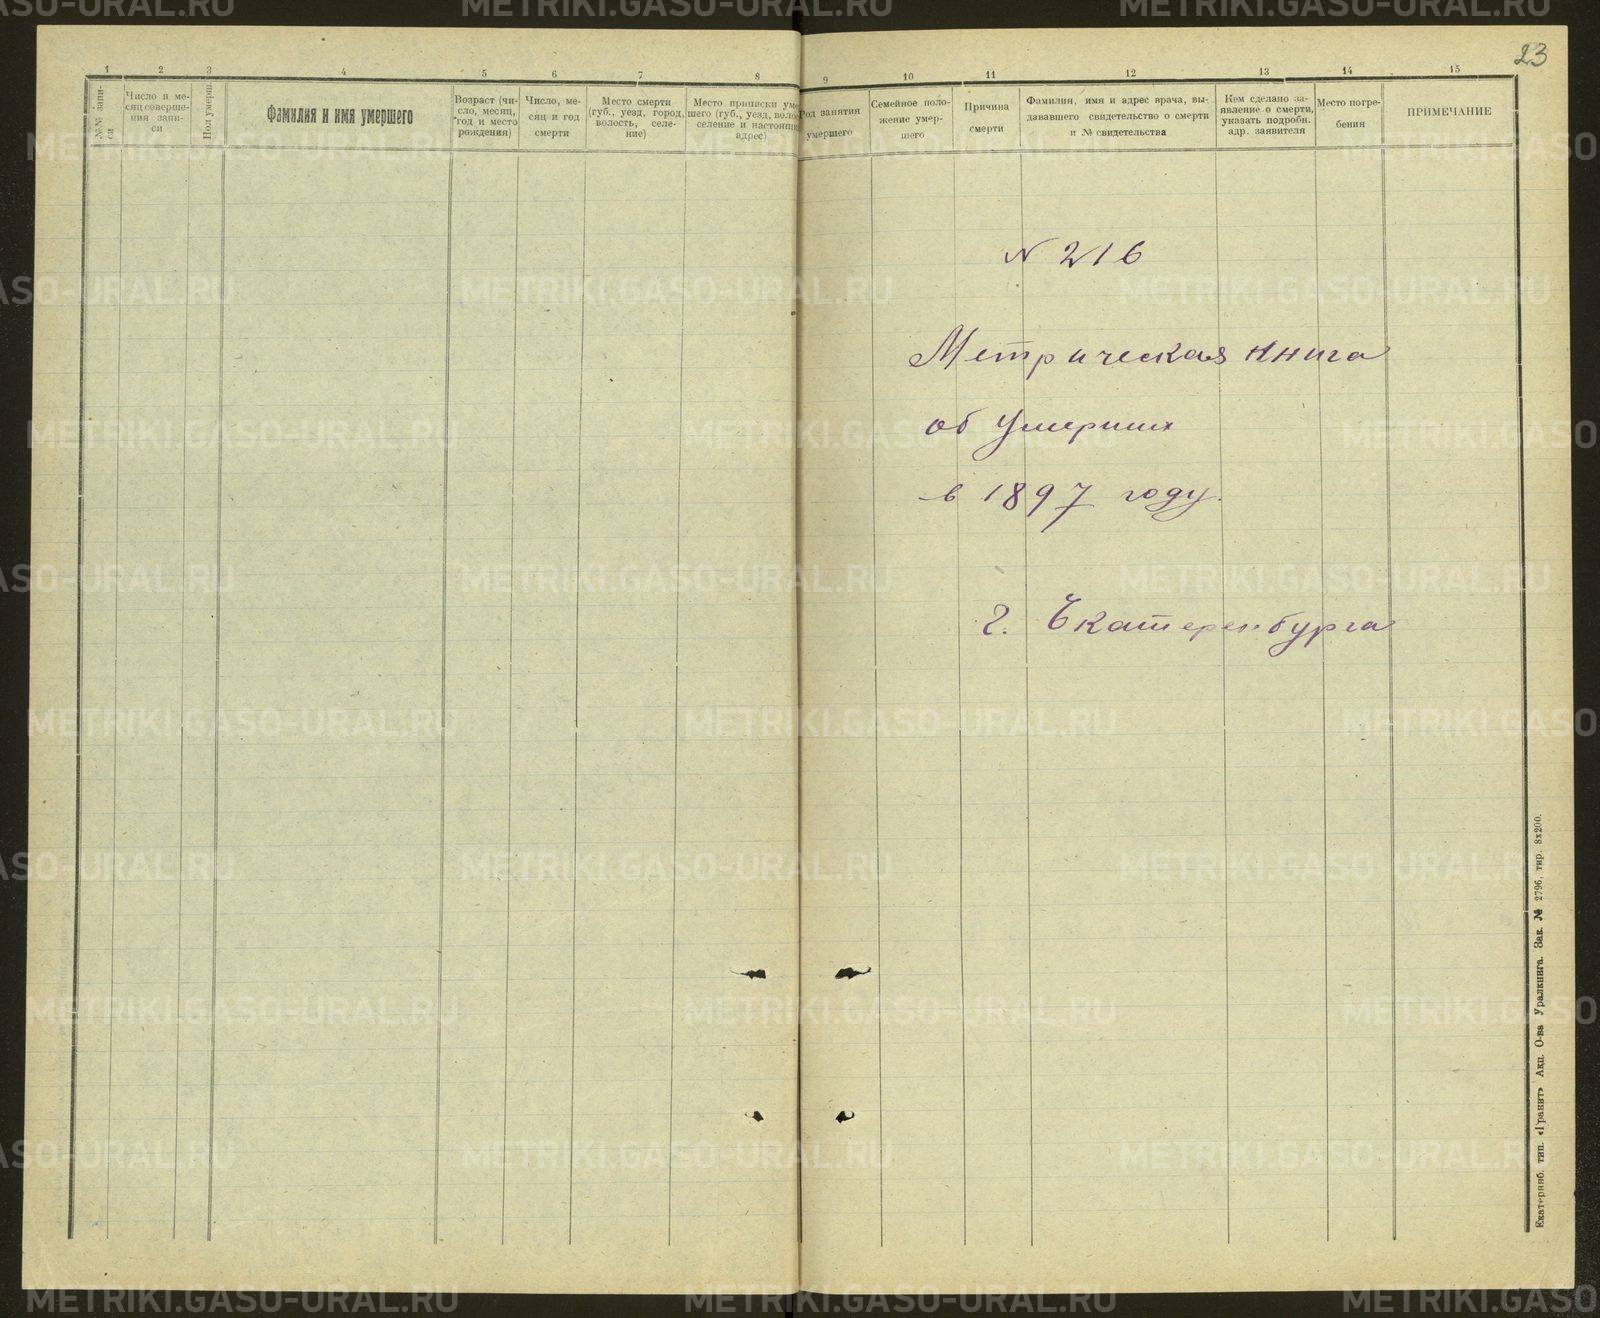 23
1 2 3 4 5 6 7 8 9 10 11 12 13 14 15
№№ запи-
си
Число и ме-
сяц соверше-
ния запи-
си
Пол умерш
Фамилия и имя умершего
Возраст (чи-
сло, месяц,
год и место
рождения)
Число, ме-
сяц и год
смерти
Место смерти
(губ., уезд, город,
волость, селе-
ние)
Место приписки уме
шего (губ., уезд, волос
селение и настоящи
адрес)
Род занятия
умершего
Семейное поло-
жение умер-
шего
Причина
смерти
Фамилия, имя и адрес врача, вы-
дававшего свидетельство о смерти
и № свидетельства
Кем сделано за-
явление о смерти,
указать подробн.
адр. заявителя
Место погре-
бения
ПРИМЕЧАНИЕ
N 216
Метрическая книга
об умерших
в 1897 году.
г. Екатеренбурга
Екатеринб. тип. «Гранит» Акц. О-ва Уралкнига. Зак. № 2796, тир. 8x200.
METRIKI.GASO-URAL.RU